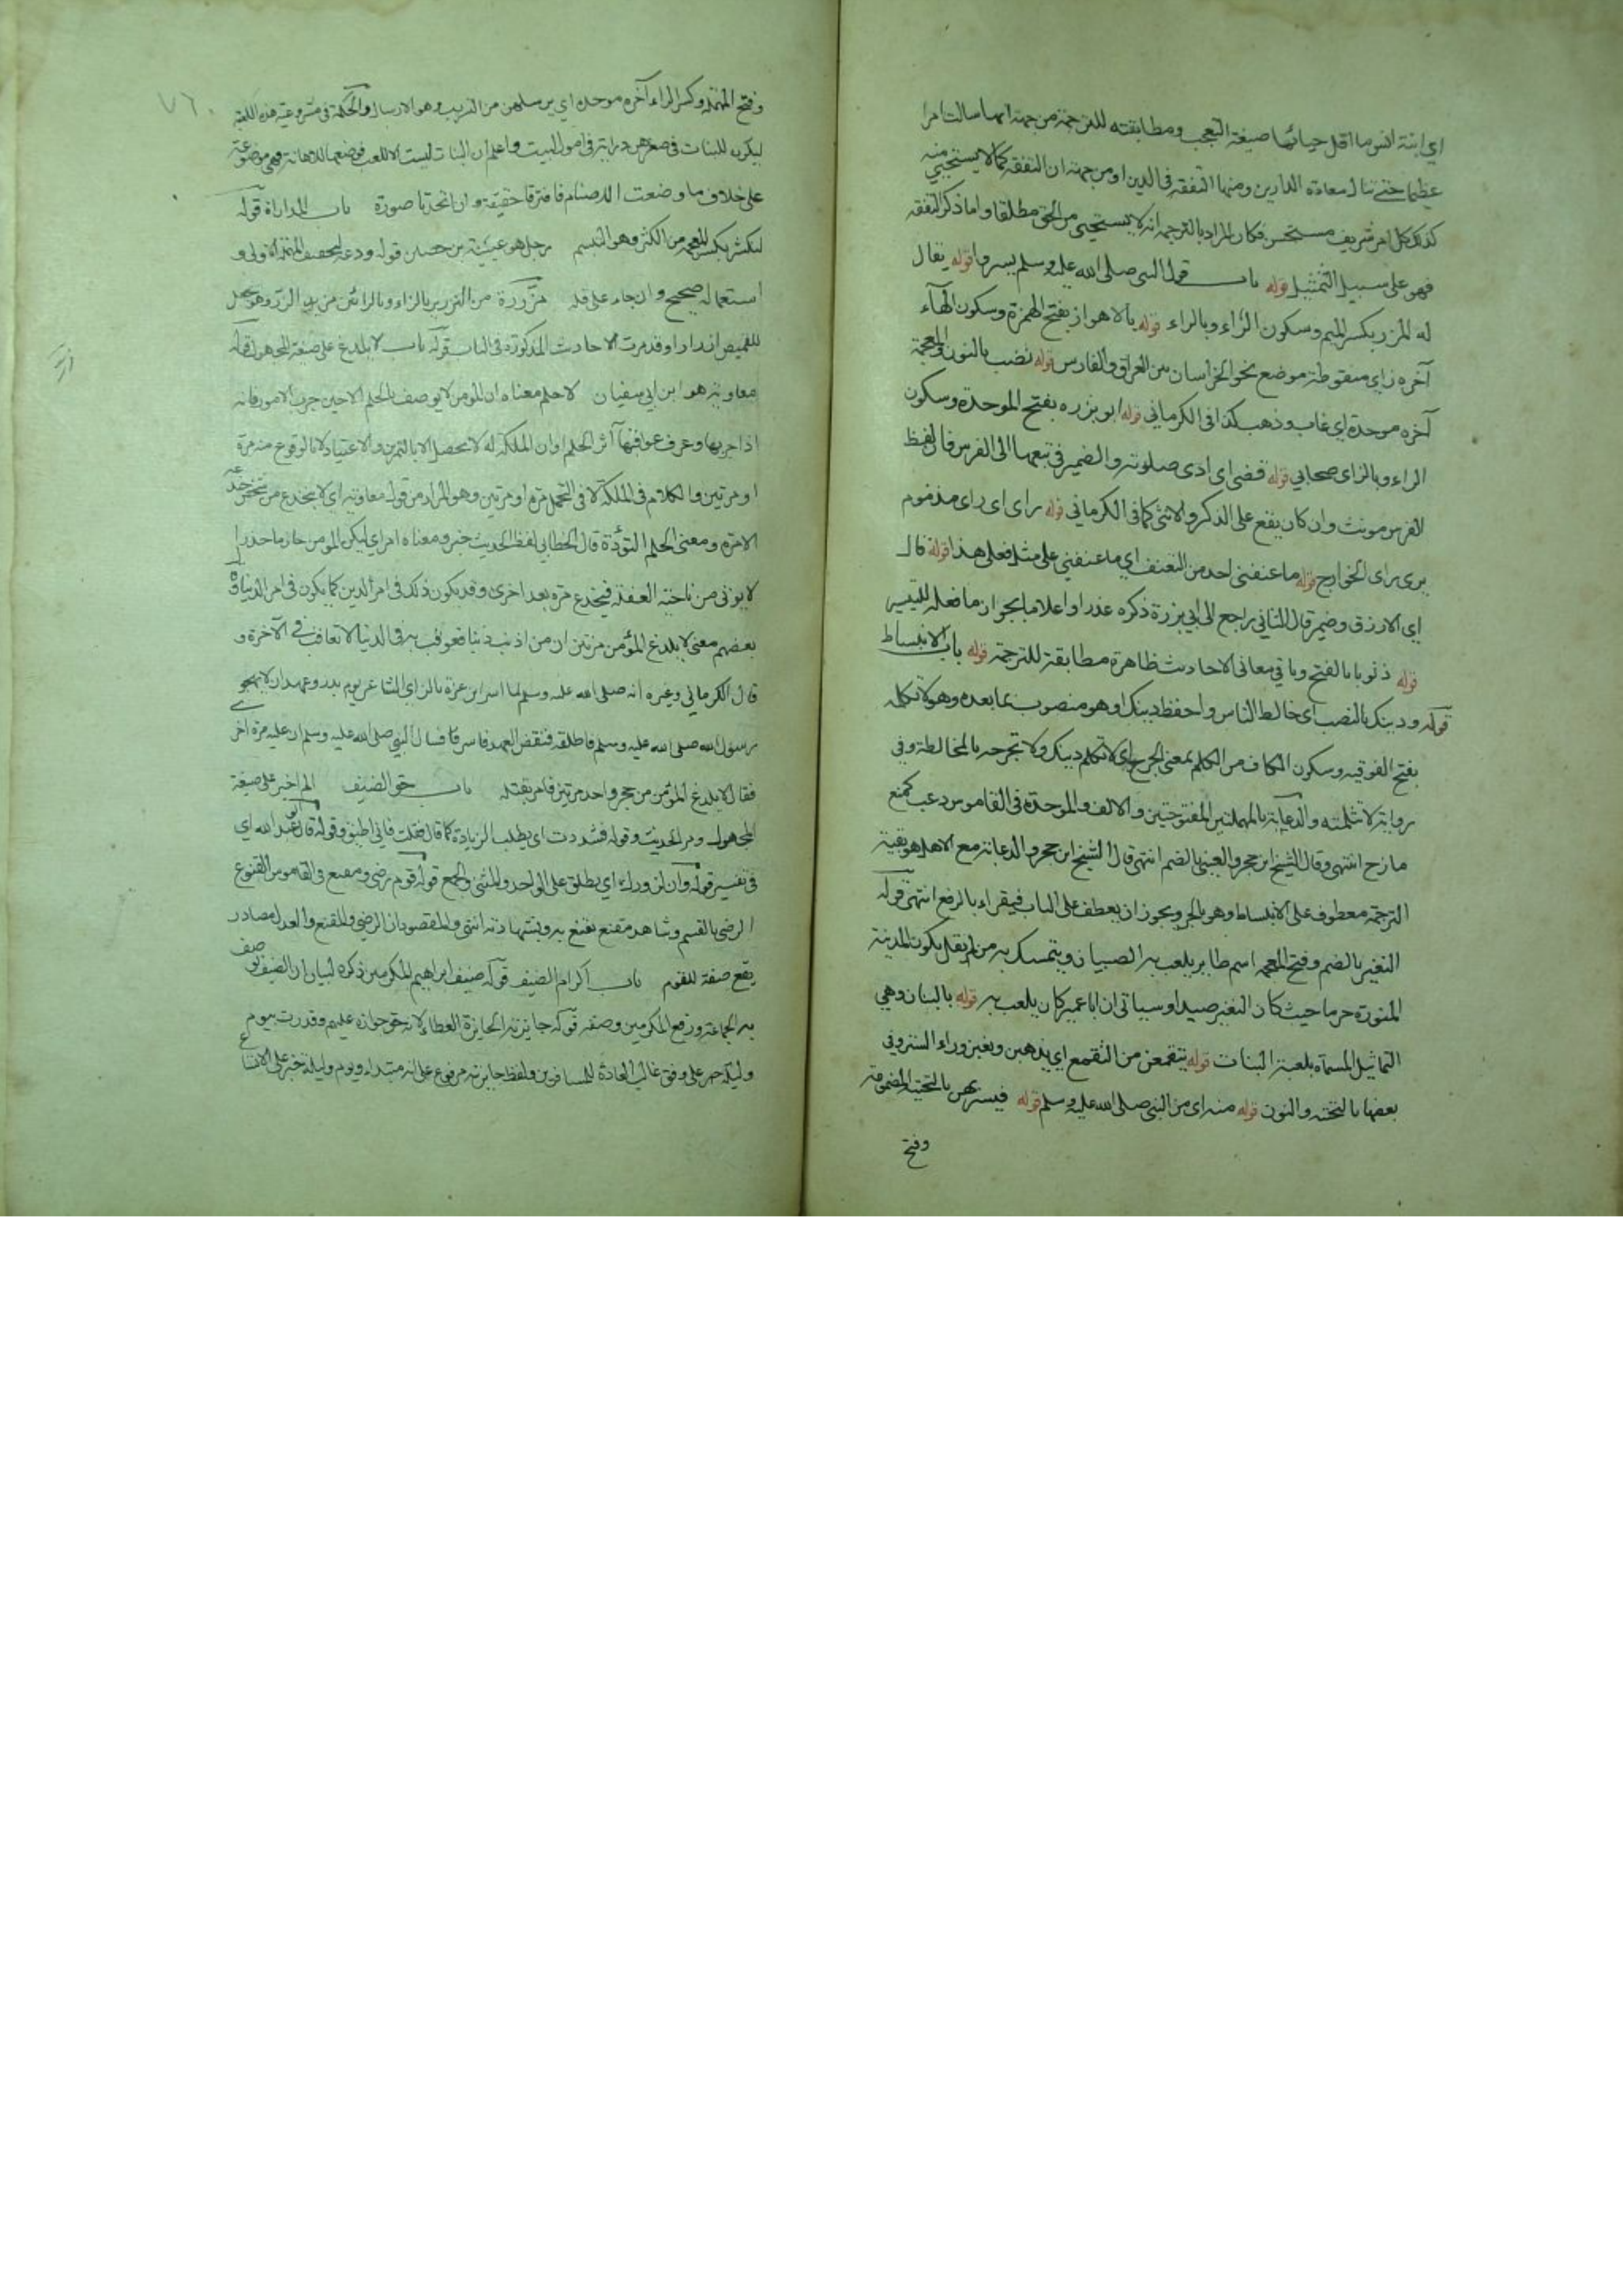 اي ابنة انس ما اقل حيائها صيغة التعجب ومطابقته للترجمة من جهة انها سالت امرا
عظيما حتى تنال سعادة الدارين ومنها التفقه في الدين او من جهة ان التفقه كما لا يستحيي منه
كذلك كل امر شريف مستحسن فكان المراد بالترجمه انه لا يستحيي من الحق مطلقا واما ذكر التفقه
فهو على سبيل التمثيل قوله باب قول النبي صلى الله عليه وسلم يسروا قوله يقال
له المزر بكسر الميم وسكون الزاء وبالراء قوله بالاهواز بفتح الهمزة وسكون الهآء
آخره زاي منقوطة موضع بخوالخراسان بين العراق والفارس قوله نضب بالنون والمعجمة
آخره موحدة اي غاب وذهب كذا في الكرماني قوله ابو برزه بفتح الموحدة وسكون
الراء وبالزاى صحابي قوله قضى اى ادى صلوته والضمير في تبعها الى الفرس فان لفظ
الفرس مونث وان كان يقع على الذكر والانثى كما في الكرماني قوله راى اى راى مذموم
يرى راى الخوارج قوله ما عنفني احد من التعنيف اي ما عنفني على مثل فعلي هذا قوله قال
اي الازرق وضمير قال الثاني راجع الى ابي برزة ذكره عذرا واعلاما بجواز ما فعله للتيسير
قوله ذنوبا بالفتح وباقي معاني الاحاديث ظاهرة مطابقة للترجمة قوله باب الانبساط
قوله ودينك بالنصب اى خالط الناس واحفظ دينك او هو منصوب بما بعده وهو لا تكلمه
بفتح الفوقيه وسكون الكاف من الكلم بمعنى الجرح اي لا تكلم دينك ولا تجرحه بالمخالطة وفي
رواية لا تثلمنه والدعابة بالمهملتين المفتوحتين والالف والموحدة في القاموس دعب كمنع
مازح انتهى وقال الشيخ ابن حجر والعيني بالضم انتهى قال الشيخ ابن حجر والدعابة مع الاهل هو بقية
الترجمة معطوف على الانبساط وهو بالجر ويجوز ان يعطف على الباب فيقراء بالرفع انتهى قوله
النغير بالضم وفتح المعجمه اسم طاير يلعب به الصبيان ويتمسك به من لم يقل بكون المدينة
المنورة حرما حيث كان النغير صيدا وسياتي ان ابا عمير كان يلعب به قوله بالبنات وهي
التماثيل المسماة بلعبة البنات قوله يتقمعن من التقمع اي يذهبن ويغبن وراء الستر وفي
بعضها بالتحتيه والنون قوله منه اى من النبي صلى الله عليه وسلم قوله فيسربهن بالتحتية المضمومة
وفتح
٧٦٠
وفتح المهملة وكسر الراء آخره موحدة اي يرسلهن من التسريب وهو الارسال والحكمة في مشروعية هذه اللعبة
ليكون للبنات في صغرهن دراية في امور البيت واعلم ان البنات ليست الا للعب فوضعها للاهانة فهي موضوعة
على خلاف ما وضعت الاصنام فافترقا حقيقة وان اتحدتا صورة باب المداراة قوله
لنكشر بكسر المعجمه من الكشر وهو التبسم رجل هو عيينة بن حصين قوله ودعه بتخفيف المهملة اولى و
استعماله صحيح وان جاء على قلة مزررة من التزرير بالزاء وبالرائين من الزر وهو يجعل
للقميص ازرارا وقد مرت الاحاديث المذكورة في الباب قوله باب لا يلدغ على صيغة المجهول قوله
معاوية هو ابن ابي سفيان لا حلم معناه ان المومن لا يوصف بالحلم الا حين جرب الامور فانه
اذا جربها وعرف عواقبها آثر الحلم او ان الملكة له لا يحصل الا بالتمرن والاعتياد لا بالوقوع منه مرة
او مرتين والكلام في الملكة لا في التحمل مرة او مرتين وهو المراد من قول معاوية اي لا ينخدع من شخص خدعه
الا مرة ومعنى الحلم التؤدة قال الخطابي لفظ الحديث خبر ومعناه امر اي ليكن المومن حازما حذرا
لا يوتى من ناحية الغفلة فيخدع مرة بعد اخرى وقد يكون ذلك في امر الدين كما يكون في امر الدنيا وقال
بعضهم معنى لا يلدغ المؤمن مرتين ان من اذنب ذنبا فعوقب به في الدنيا لا تعاقب في الآخرة و
قال الكرماني وغيره انه صلى الله عليه وسلم لما اسر ابن عزة بالزاي الشاعر يوم بدر وعهد ان لا يهجو
رسول الله صلى الله عليه وسلم فاطلقه فنقض العهد فاسر فسال النبي صلى الله عليه وسلم ان عليه مرة اخر
فقال لا يلدغ المؤمن من جحر واحد مرتين فامر بقتله باب حق الضيف الم اخبر على صيغة
المجهول ومر الحديث وقوله فشددت اى يطلب الزيادة كما قال فقلت فاني اطيق وقوله قال ابو عبد الله اي
في تفسير قوله وان لزورك اي يطلق على الواحد والمثنى والجمع قوله قوم رضى ومقنع في القاموس القنوع
الرضى بالقسم وشاهد مقنع يقنع به وبشهادته انتهى والمقصود ان الرضى والمقنع والعدل مصادر
يقع صفة للقوم باب اكرام الضيف قوله ضيف ابراهيم المكرمين ذكره لبيان ان الضيف يوصف
به الجماعة ووقع المكرمين وصفه قوله جايزته الجايزة العطاء لانه حق جوازه عليهم وقدرت بيوم
وليلة حمل على وفق غالب العادة للمسافرين ولفظ جايزته مرفوع على انه مبتداء ويوم وليلة خبر على الاتساع